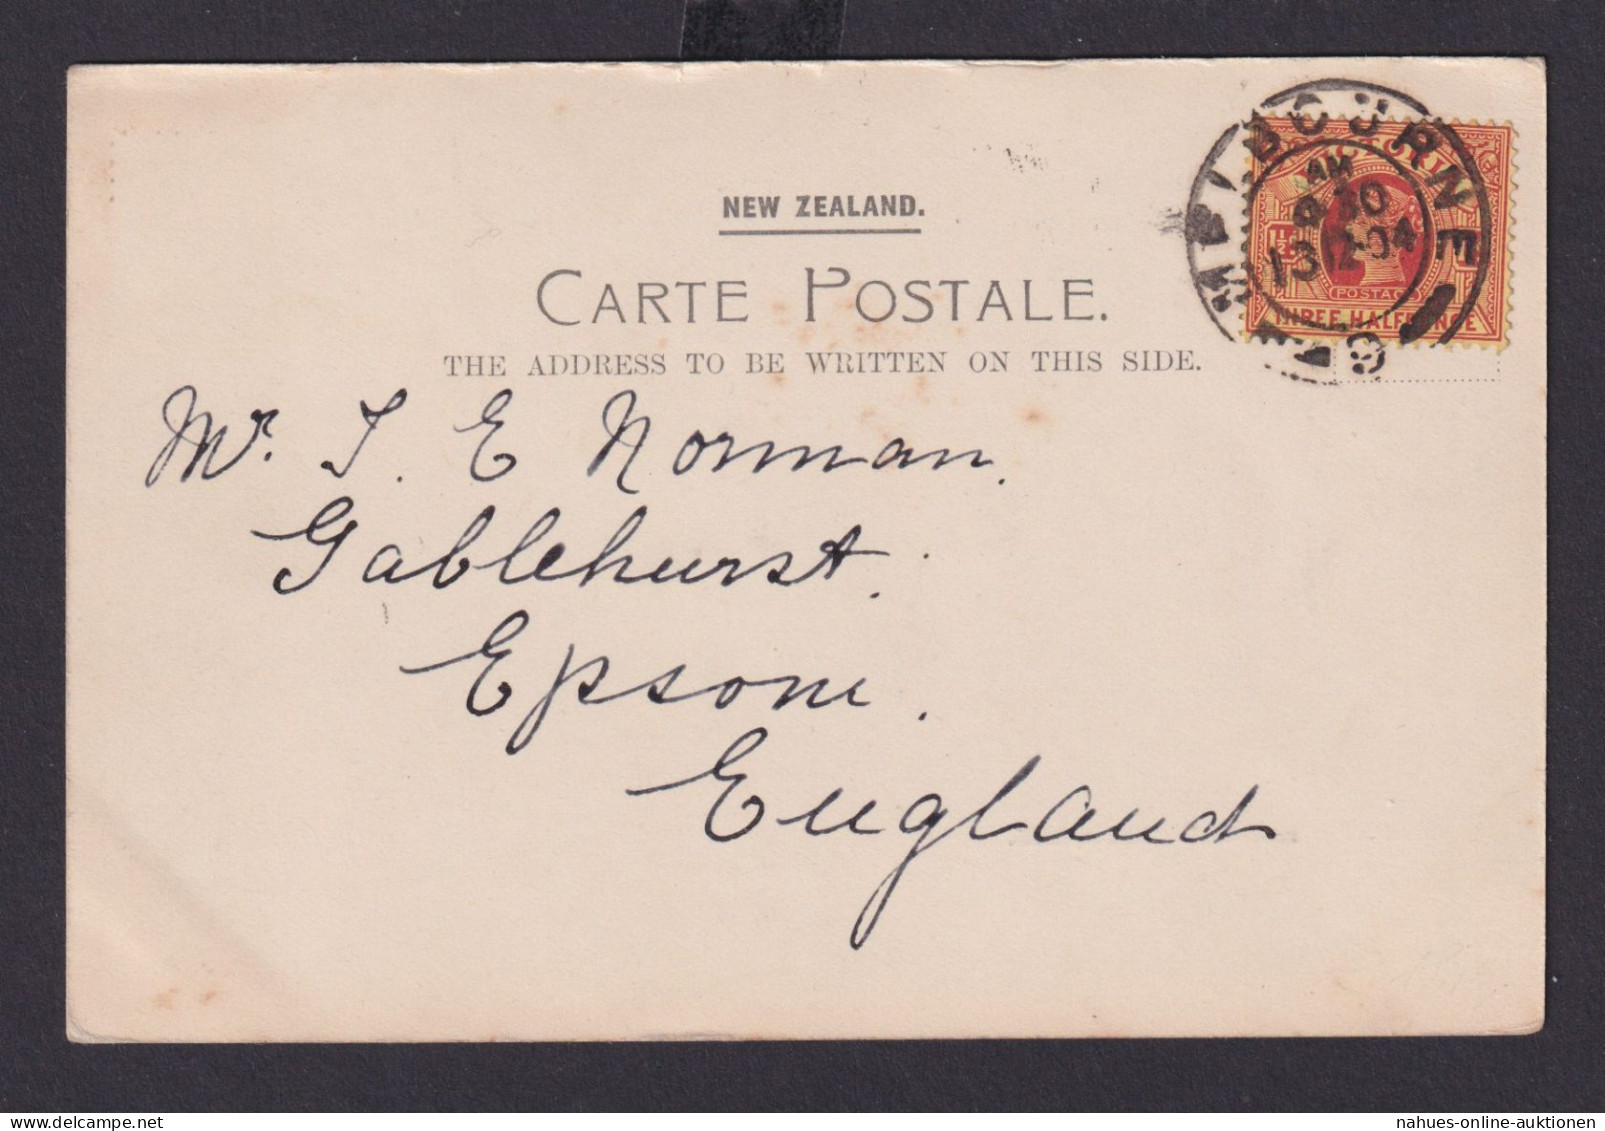 NEW ZEALAND.
CARTE POSTALE.
THE ADDRESS TO BE WRITTEN ON THIS SIDE.
MELBOURNE
AM
30
13 12 04
VICTORIA
1½
POSTAGE
THREE HALFPENCE
Mr. J. E Norman.
Gablehurst.
Epsom.
England
nahues-online-auktionen